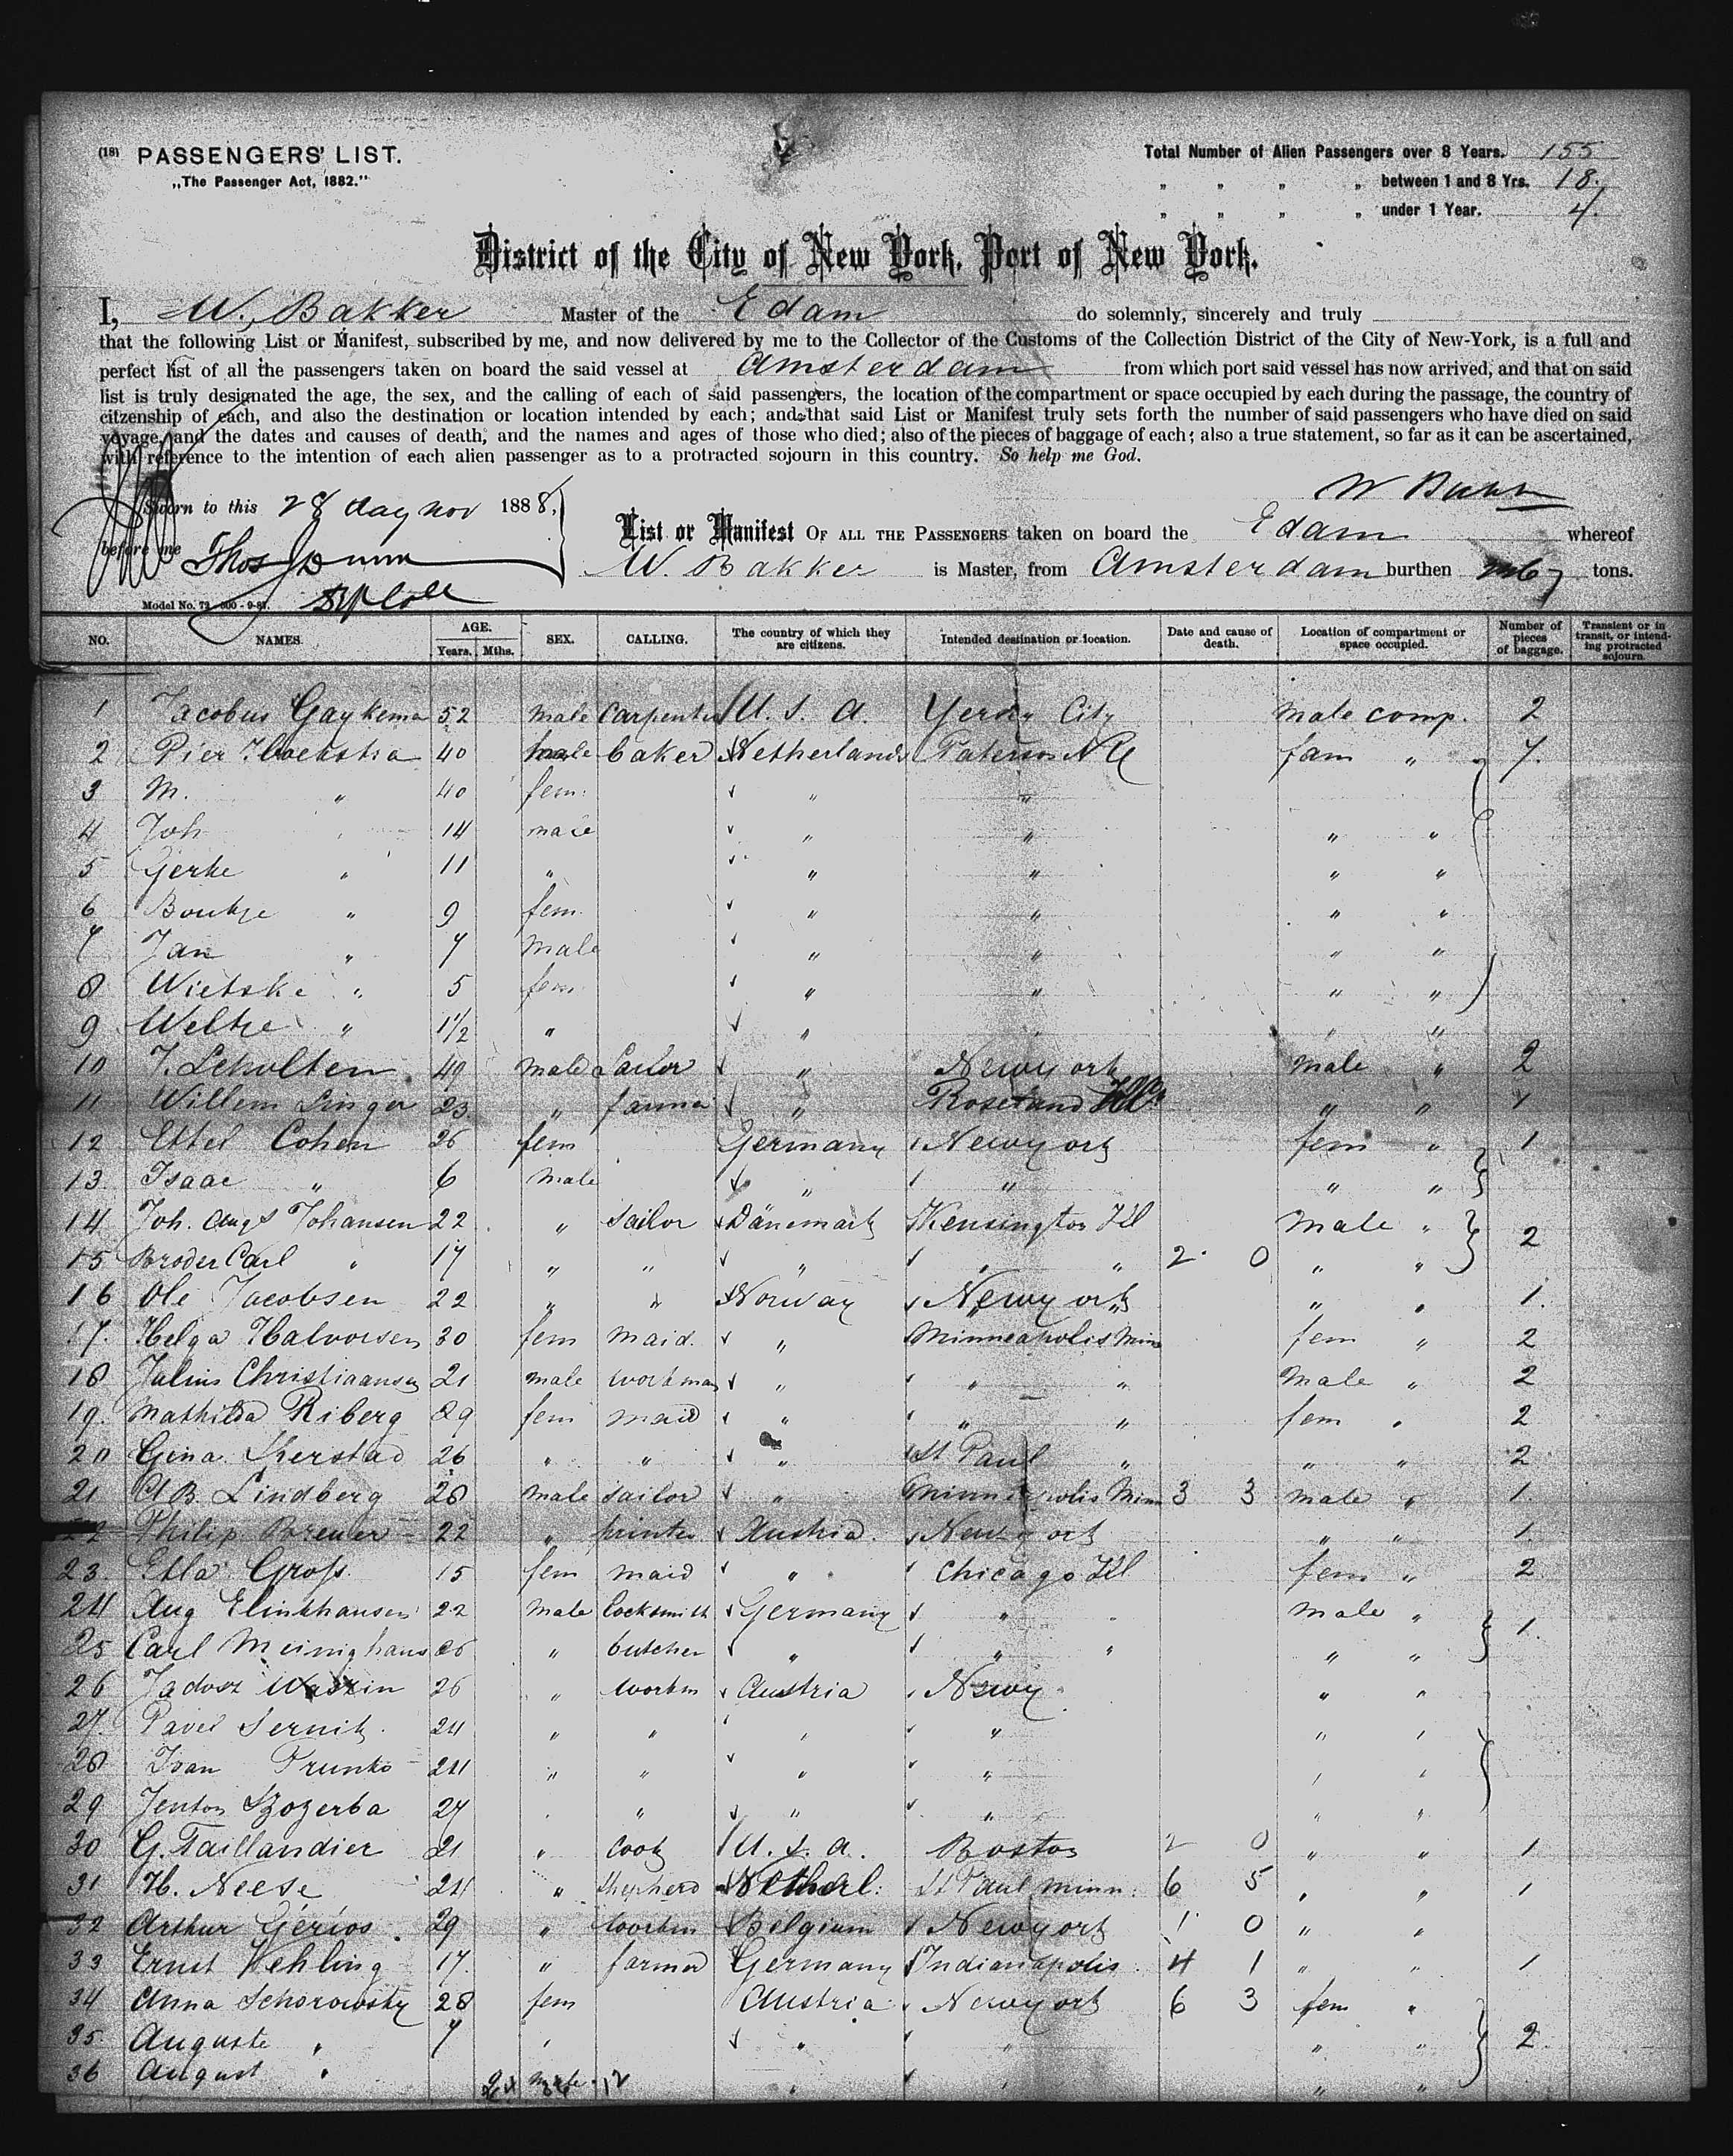 (18) PASSENGERS' LIST.
„The Passenger Act, 1882."
Total Number of Alien Passengers over 8 Years. 155
„ „ „ „ between 1 and 8 Yrs. 18.
„ „ „ „ under 1 Year. 4.
District of the City of New York, Port of New York.
I, W. Bakker Master of the Edam do solemnly, sincerely and truly
that the following List or Manifest, subscribed by me, and now delivered by me to the Collector of the Customs of the Collection District of the City of New-York, is a full and
perfect list of all the passengers taken on board the said vessel at Amsterdam from which port said vessel has now arrived, and that on said
list is truly designated the age, the sex, and the calling of each of said passengers, the location of the compartment or space occupied by each during the passage, the country of
citzenship of each, and also the destination or location intended by each; and that said List or Manifest truly sets forth the number of said passengers who have died on said
voyage, and the dates and causes of death, and the names and ages of those who died; also of the pieces of baggage of each; also a true statement, so far as it can be ascertained,
with reference to the intention of each alien passenger as to a protracted sojourn in this country. So help me God.
Sworn to this 28 day nov 1888,
before me Thos J Dunn
Model No. 72
List or Manifest OF ALL THE PASSENGERS taken on board the Edam whereof
W. Bakker is Master, from Amsterdam burthen tons.
NO. NAMES. AGE. Years. Mths. SEX. CALLING. The country of which they are citizens. Intended destination or location. Date and cause of death. Location of compartment or space occupied. Number of pieces of baggage. Transient or in transit, or intending protracted sojourn.
1 Jacobus Gaykema 52 male Carpenter U. S. A. Yersey City male comp. 2
2 Pier Hoekstra 40 male baker Netherlands Paterson fam „ 7.
3 M. „ 40 fem. „ „
4 Joh „ 14 male „ „ „ „
5 Gerke „ 11 „ „ „ „ „
6 Boukje „ 9 fem. „ „ „ „
7 Jan „ 7 male „ „ „ „
8 Wietske „ 5 fem „ „ „ „
9 Weltje „ 1½ „ „ „ „ „
10 J. Scholten 49 male „ Newyork male „ 2
11 Willem Singer 23 „ farmer „ Roseland „ „ 1
12 Ettel Cohen 26 fem Germany Newyork fem „ 1
13. Isaac „ 6 male „ „ „ „
14 Joh. Augs Johansen 22 „ sailor Dänemark Kensington Ill male „ 2
15 Broder Carl „ 17 „ „ „ „ „ 2 0 „ „
16 Ole Jacobsen 22 „ „ Norway Newyork „ „ 1.
17. Helga Halvorsen 30 fem maid. „ Minneapolis Minn fem „ 2
18 Julius Christiaansen 21 male workman „ „ „ male „ 2
19. Mathilda Riberg 29 fem maid „ „ „ fem „ 2
20 Gina Skerstad 26 „ „ „ St Paul „ „ „ 2
21 B. Lindberg 28 male sailor „ Minneapolis Minn 3 3 male „ 1.
22 Philip Bremer 22 „ printer Austria. Newyork „ „ 1.
23. Etla Gross 15 fem maid „ Chicago Ill fem „ 2
24 Aug Elinkhausen 22 male locksmith Germany „ „ male „ 1.
25 Carl Meinighaus 26 „ butcher „ „ „ „ „
26 Jadosz Waszin 26 „ workm Austria Newy „ „
27. Pavel Sernik. 24 „ „ „ „ „ „
28 Ivan Trunko 24 „ „ „ „ „ „
29 Jenton Szozerba 27 „ „ „ „ „ „
30 G. Taillandier 21 „ cook U. S. A. Boston 2 0 „ „ 1
31 H. Neese 24 „ shepherd Netherl: St Paul Minn: 6 5 „ „ 1
32 Arthur Gérios. 29 „ workm Belgium Newyork 1 0 „ „
33 Ernst Wehling 17. „ farmer Germany Indianapolis 4 1 „ „ 1
34 Anna Schorowsky 28 fem Austria Newyork 6 3 fem „ 2
35. Auguste „ 7 „ „ „ „ „
36 August „ male „ „ „ „